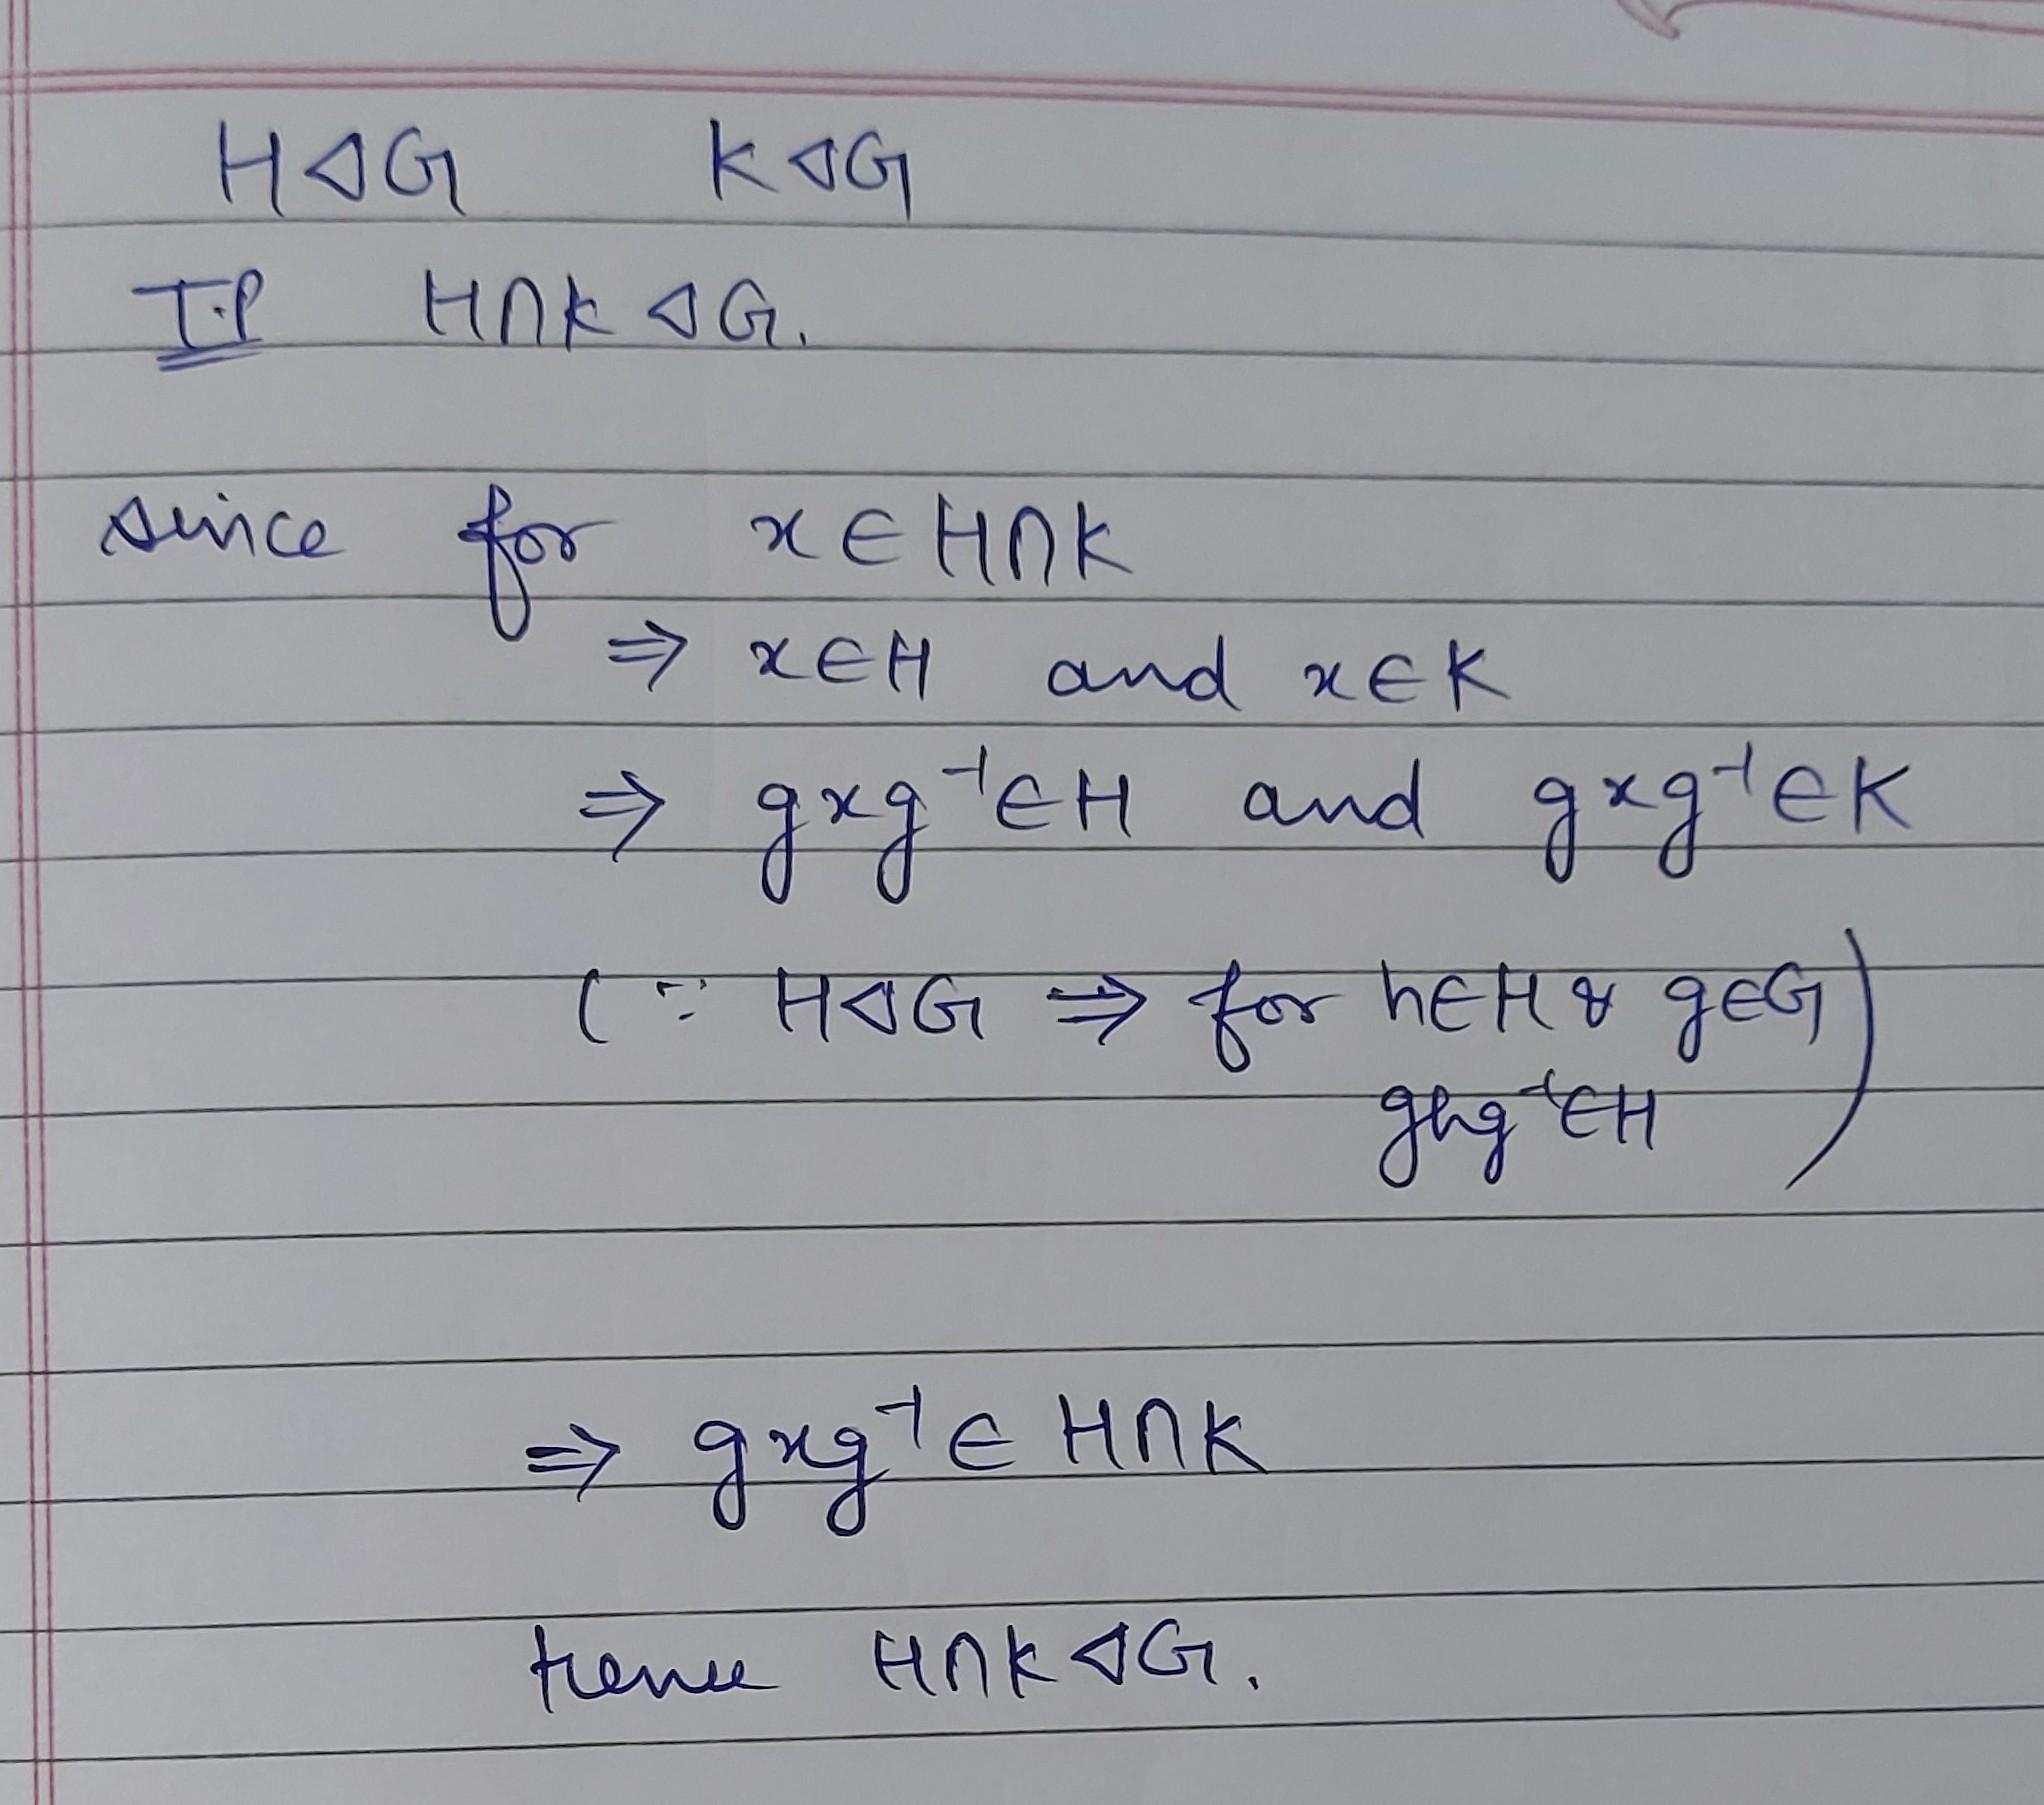 H⊲G K⊲G
T.P H∩K ⊲G.
since for x∈H∩K
⇒ x∈H and x∈K
⇒ gxg⁻¹∈H and gxg⁻¹∈K
(∵ H⊲G ⇒ for h∈H & g∈G)
ghg⁻¹∈H
⇒ gxg⁻¹∈ H∩K
Hence H∩K⊲G.